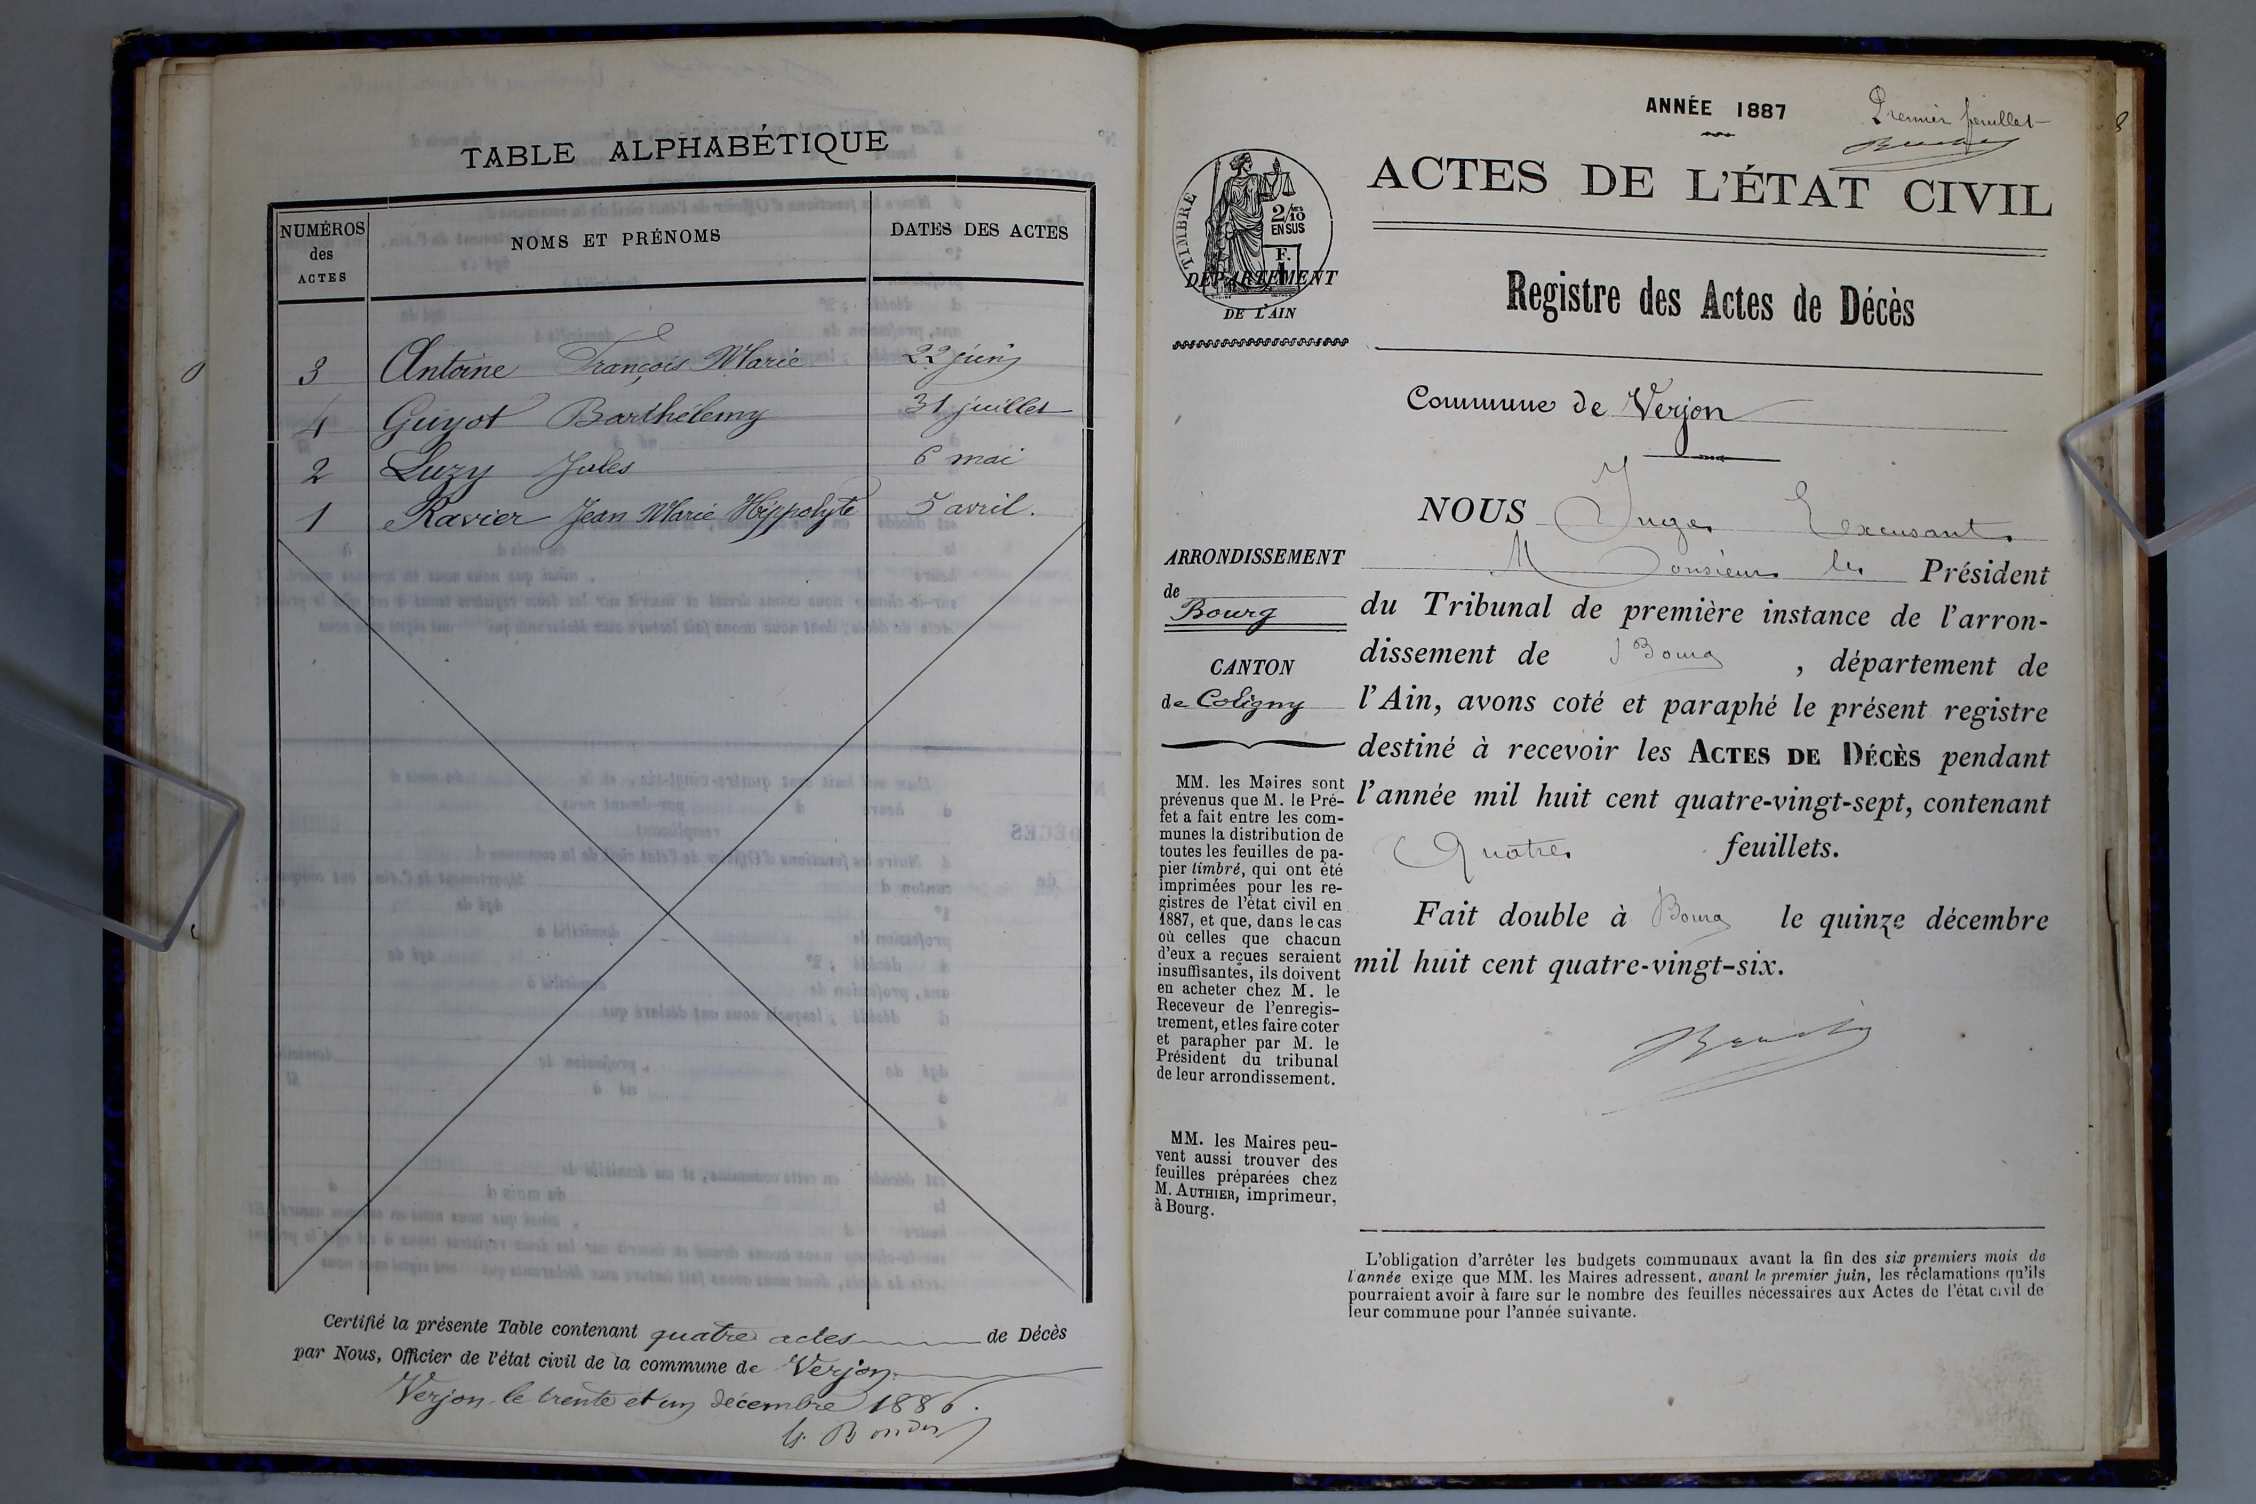 TABLE ALPHABÉTIQUE
NUMÉROS
des
ACTES
NOMS ET PRÉNOMS
DATES DES ACTES
3 Antoine François Marie 22 juin
4 Guyot Barthélemy 31 juillet
2 Luzy Jules 6 mai
1 Ravier Jean Marie Hippolyte 5 avril.
Certifié la présente Table contenant quatre actes de Décès
par Nous, Officier de l'état civil de la commune de Verjon
Verjon le trente et un décembre 1886.
ANNÉE 1887
Premier feuillet
ACTES DE L'ÉTAT CIVIL
TIMBRE
2/10
EN SUS
F.
1
DÉPARTEMENT
DE L'AIN
Registre des Actes de Décès
Commune de Verjon
ARRONDISSEMENT
de
Bourg
CANTON
de Coligny
MM. les Maires sont
prévenus que M. le Pré-
fet a fait entre les com-
munes la distribution de
toutes les feuilles de pa-
pier timbré, qui ont été
imprimées pour les re-
gistres de l'état civil en
1887, et que, dans le cas
où celles que chacun
d'eux a reçues seraient
insuffisantes, ils doivent
en acheter chez M. le
Receveur de l'enregis-
trement, et les faire coter
et parapher par M. le
Président du tribunal
de leur arrondissement.
MM. les Maires peu-
vent aussi trouver des
feuilles préparées chez
M. AUTHIER, imprimeur,
à Bourg.
NOUS Juge Excusant
Monsieur le Président
du Tribunal de première instance de l'arron-
dissement de Bourg, département de
l'Ain, avons coté et paraphé le présent registre
destiné à recevoir les ACTES DE DÉCÈS pendant
l'année mil huit cent quatre-vingt-sept, contenant
Quatre feuillets.
Fait double à Bourg le quinze décembre
mil huit cent quatre-vingt-six.
L'obligation d'arrêter les budgets communaux avant la fin des six premiers mois de
l'année exige que MM. les Maires adressent, avant le premier juin, les réclamations qu'ils
pourraient avoir à faire sur le nombre des feuilles nécessaires aux Actes de l'état civil de
leur commune pour l'année suivante.